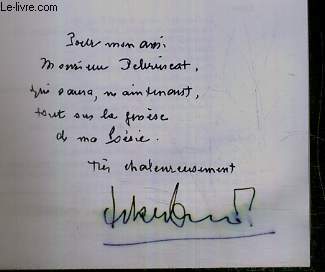 Le-livre.com
Pour mon ami
Monsieur Delriscat,
qui saura, maintenant,
tout sur la genèse
de ma Poésie.
très chaleureusement